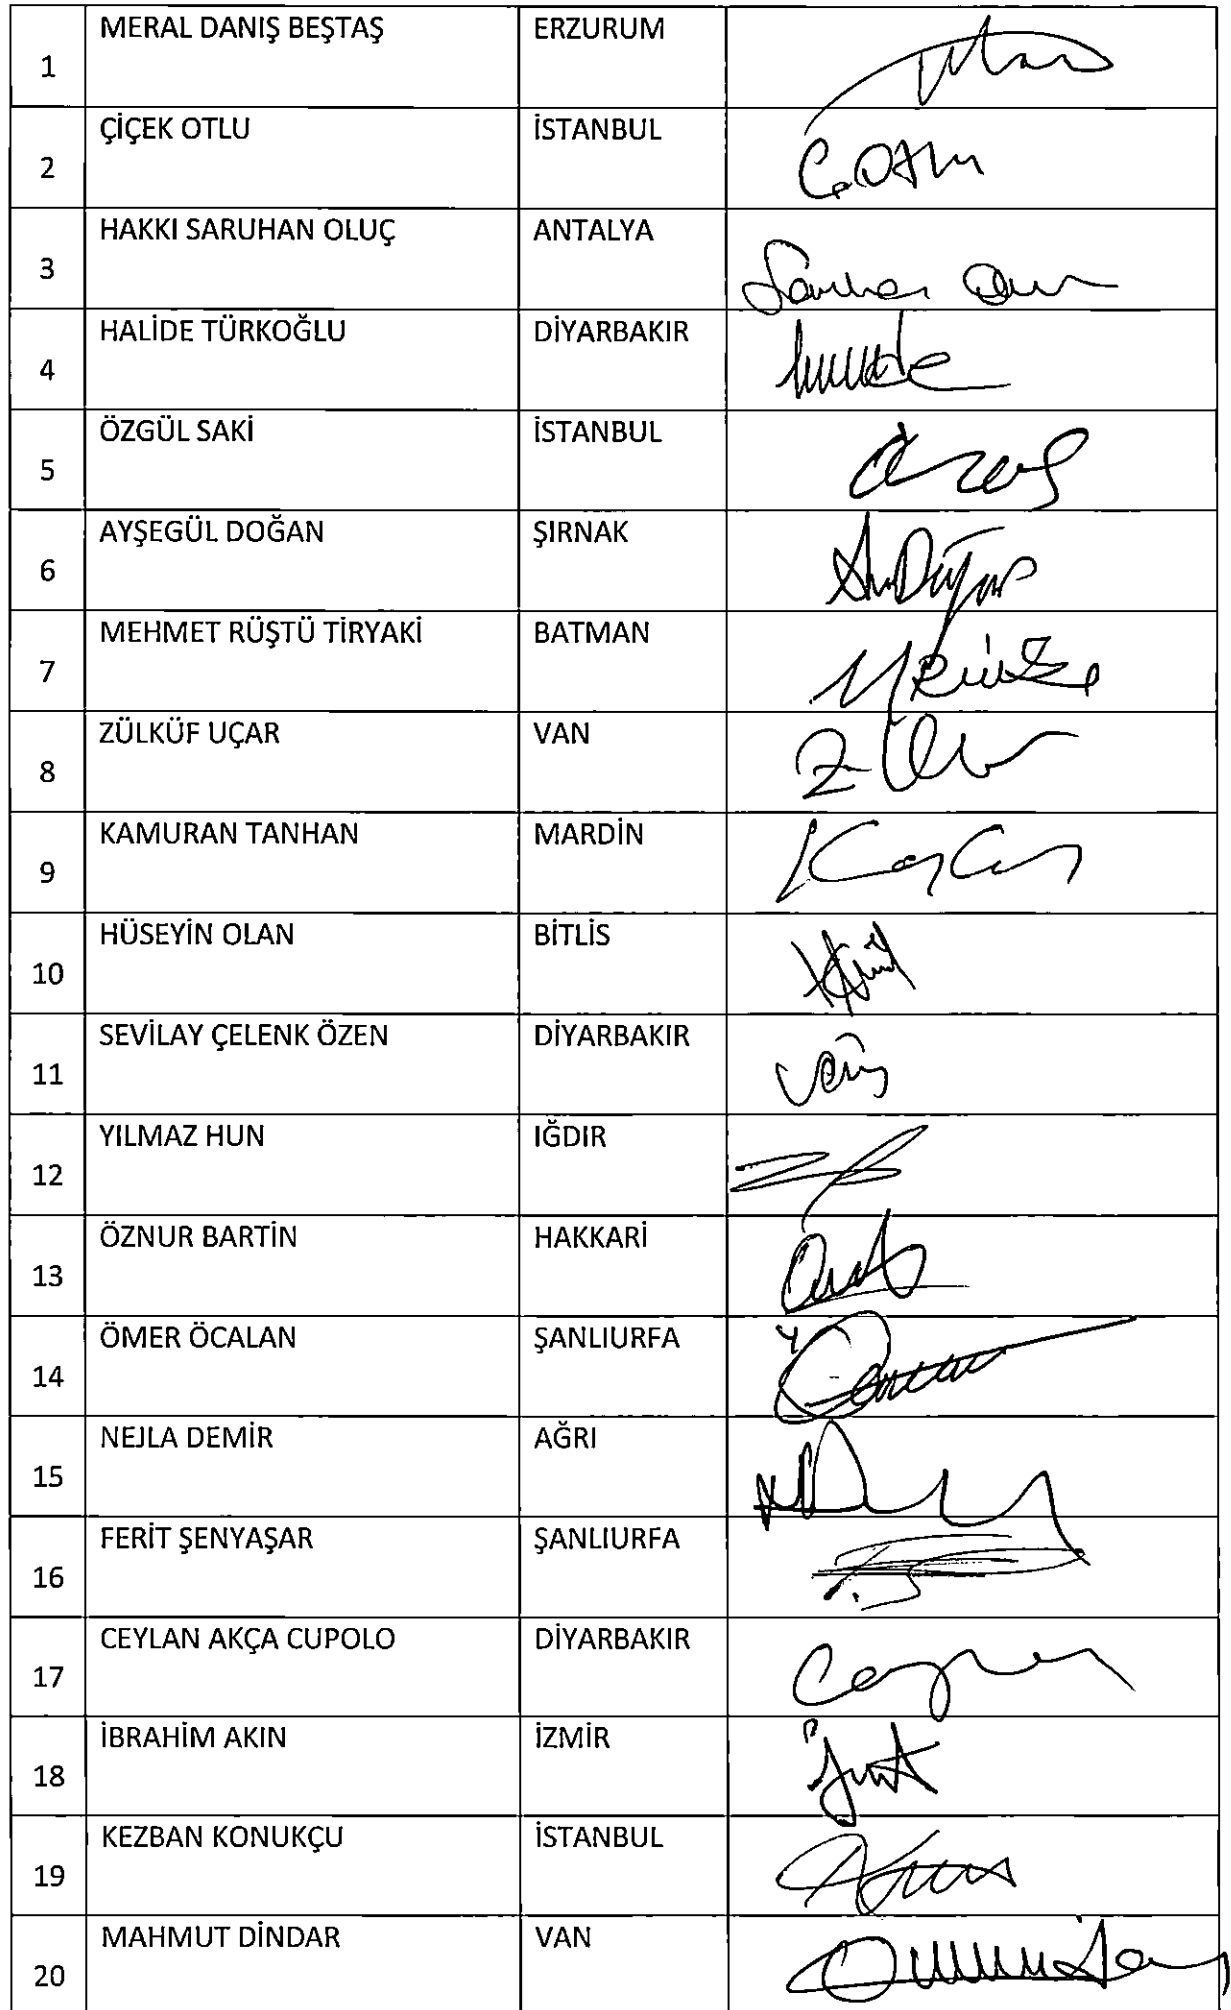 1 MERAL DANIŞ BEŞTAŞ ERZURUM
2 ÇİÇEK OTLU İSTANBUL
3 HAKKI SARUHAN OLUÇ ANTALYA
4 HALİDE TÜRKOĞLU DİYARBAKIR
5 ÖZGÜL SAKİ İSTANBUL
6 AYŞEGÜL DOĞAN ŞIRNAK
7 MEHMET RÜŞTÜ TİRYAKİ BATMAN
8 ZÜLKÜF UÇAR VAN
9 KAMURAN TANHAN MARDİN
10 HÜSEYİN OLAN BİTLİS
11 SEVİLAY ÇELENK ÖZEN DİYARBAKIR
12 YILMAZ HUN IĞDIR
13 ÖZNUR BARTİN HAKKARİ
14 ÖMER ÖCALAN ŞANLIURFA
15 NEJLA DEMİR AĞRI
16 FERİT ŞENYAŞAR ŞANLIURFA
17 CEYLAN AKÇA CUPOLO DİYARBAKIR
18 İBRAHİM AKIN İZMİR
19 KEZBAN KONUKÇU İSTANBUL
20 MAHMUT DİNDAR VAN